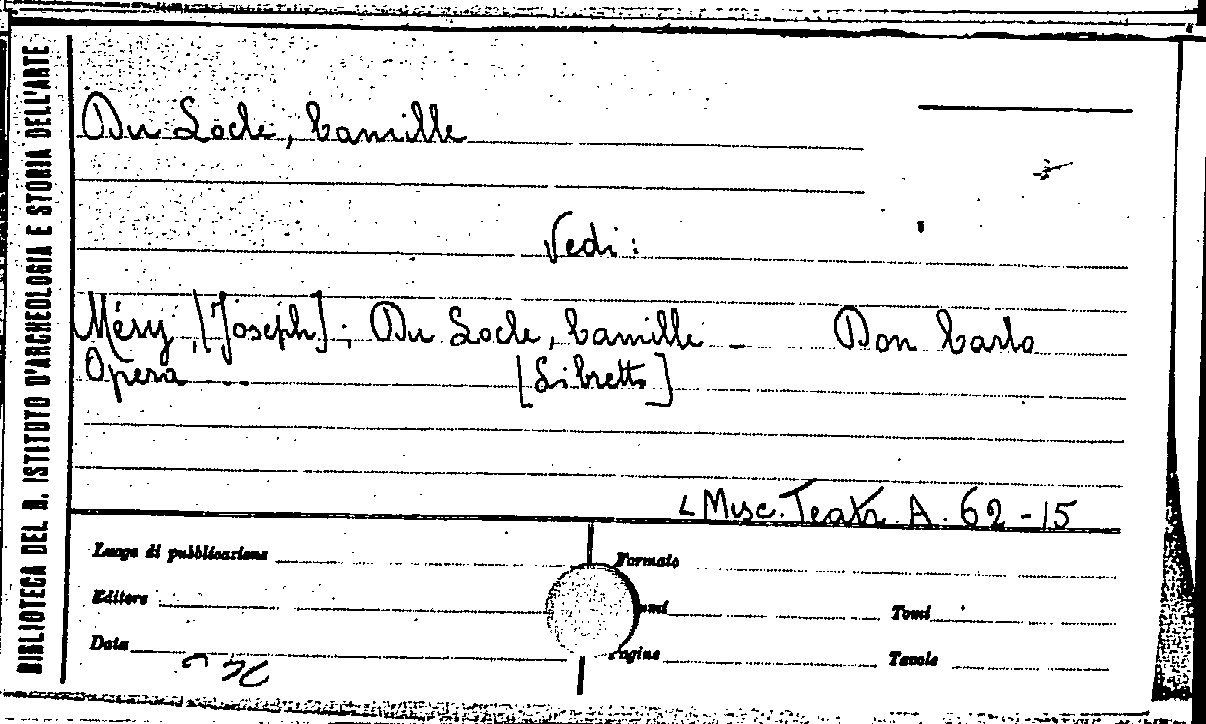 BIBLIOTECA DEL R. ISTITUTO D'ARCHEOLOGIA E STORIA DELL'ARTE
Du Locle, Camille
Vedi:
Méry, [Joseph]; Du Locle, Camille - Don Carlo
Opera ... [Libretto]
Misc. Teatr. A. 62 - 15
Luogo di pubblicazione Formato
Editore umi Tomi
Data agine Tavole